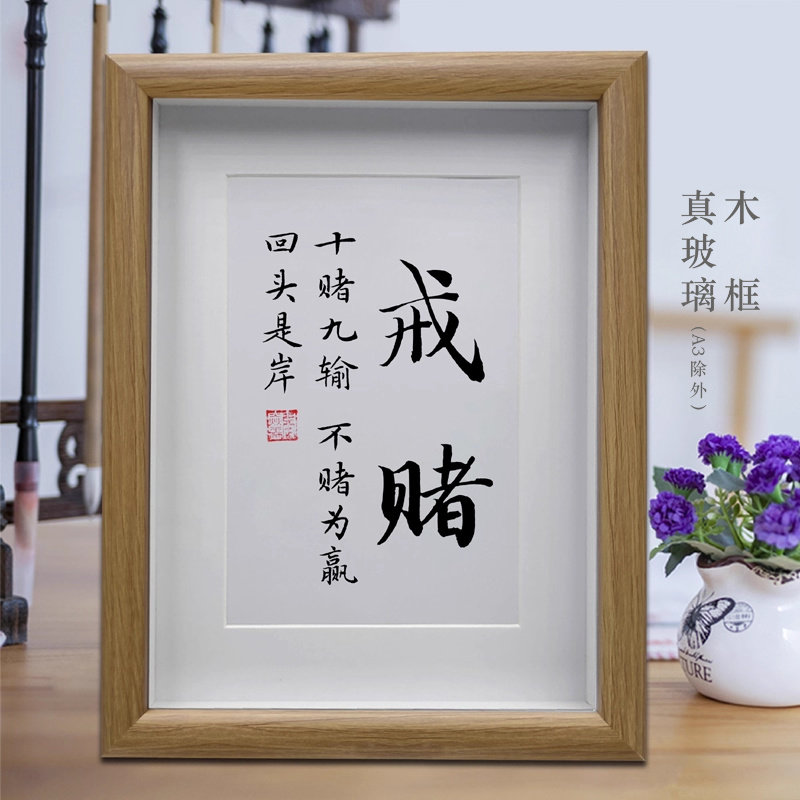 戒赌
十赌九输 不赌为赢
回头是岸
木框
真玻璃(A3除外)
TURE